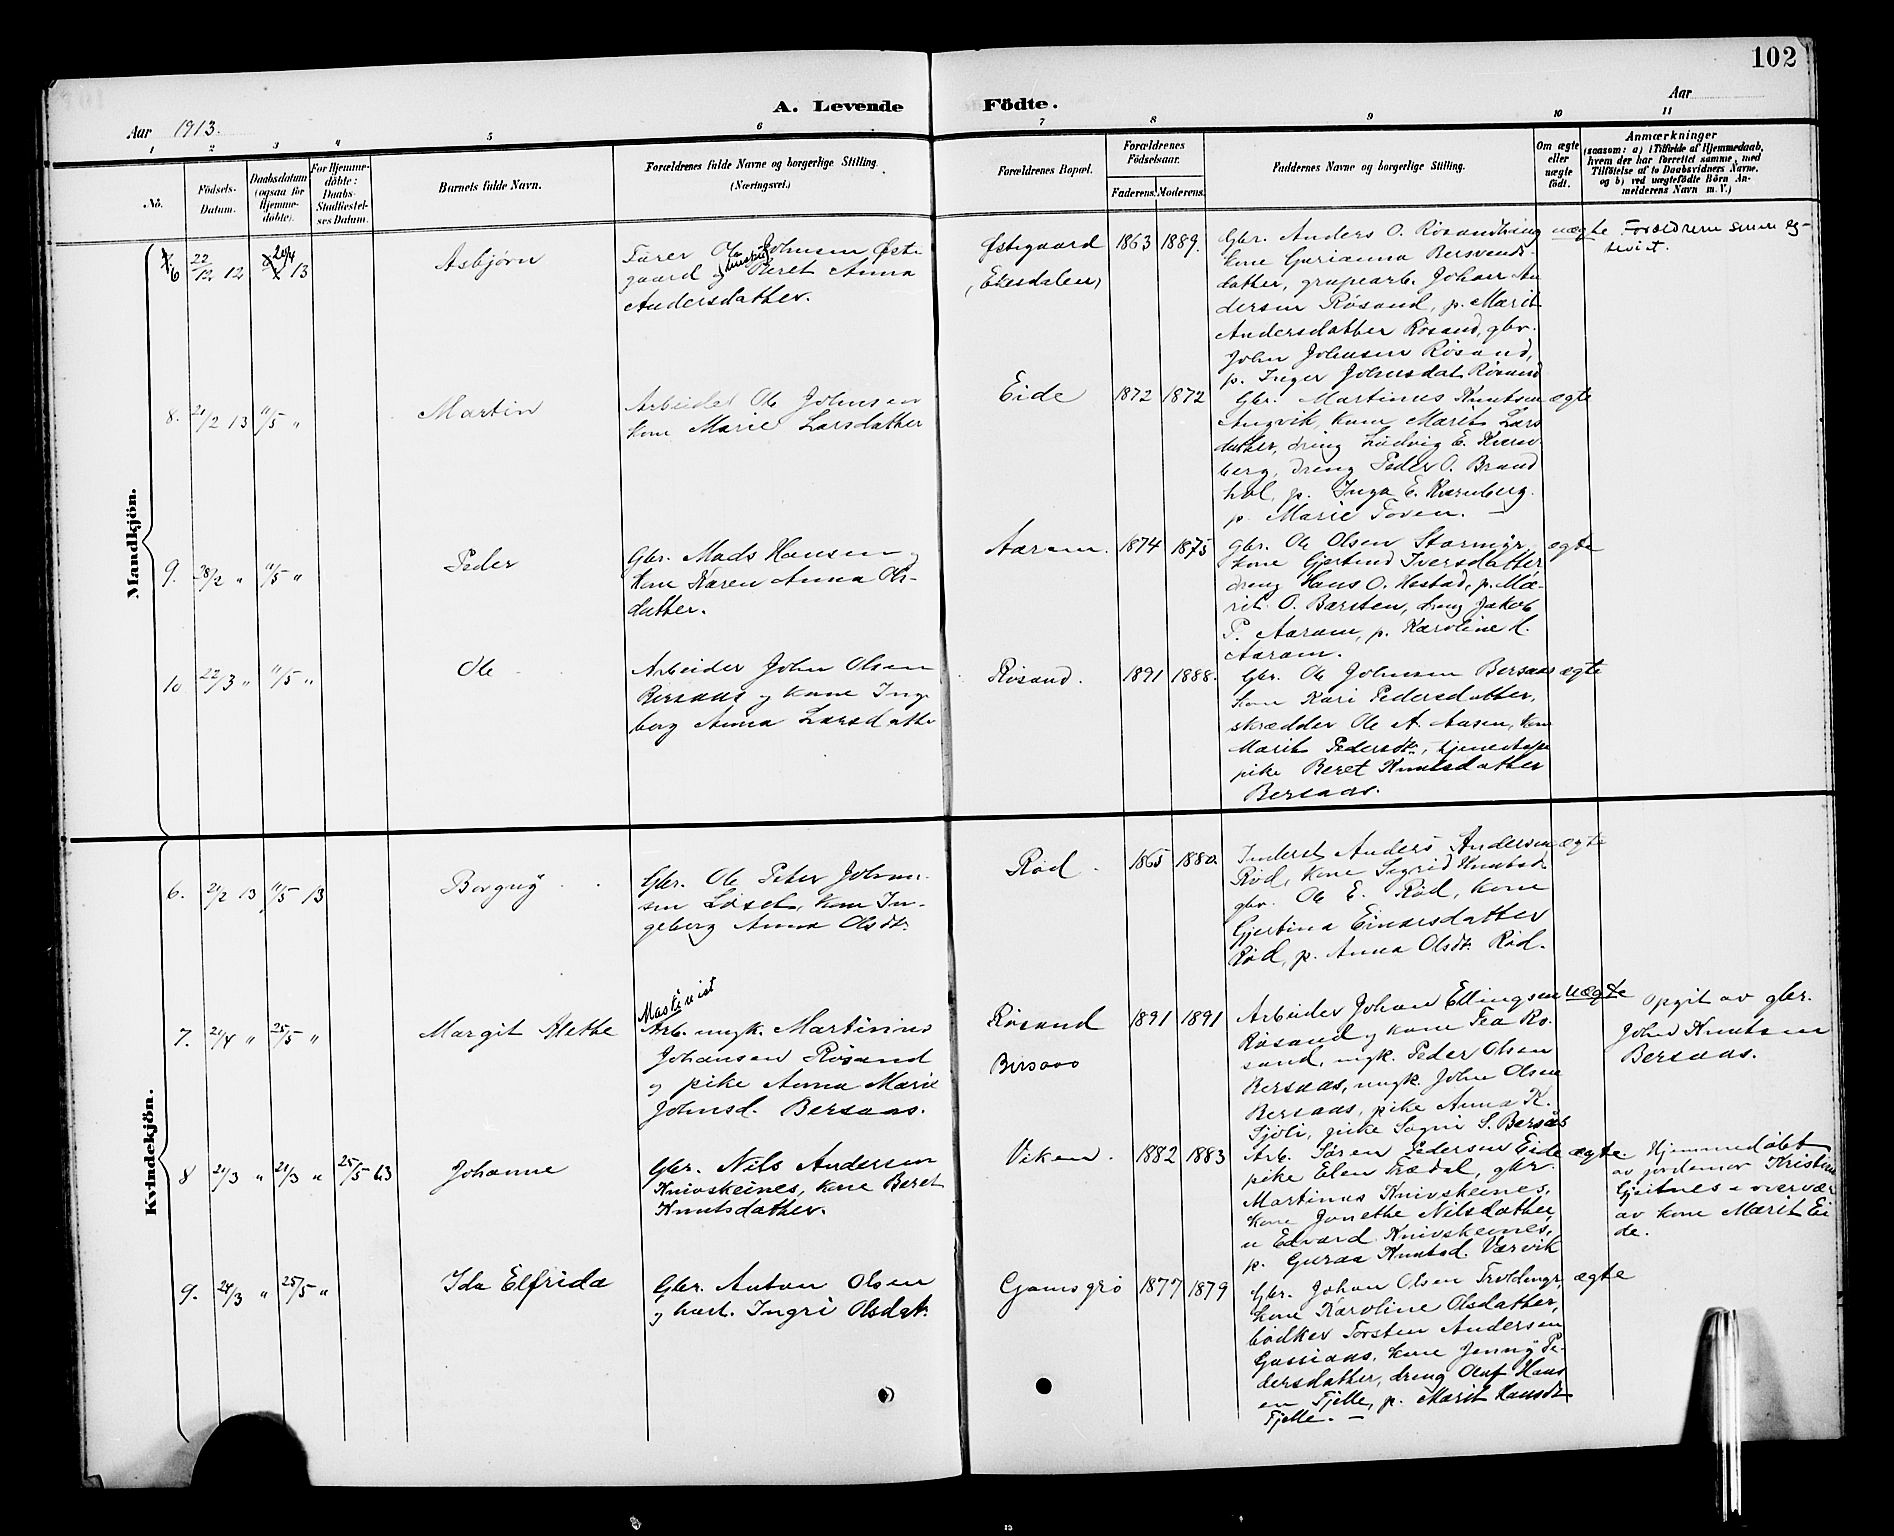 102
A. Levende Födte.
Aar 1913.
Aar
1 2 3 4 5 6 7 8 9 10 11
No.
Födsels-
Datum.
Daabsdatum
(ogsaa for
Hjemme-
döbte).
For Hjemme-
döbte:
Daabs-
Stadfæstel-
ses Datum.
Barnets fulde Navn.
Forældrenes fulde Navne og borgerlige Stilling.
(Næringsvei.)
Forældrenes Bopæl.
Forældrenes
Födselsaar.
Faderens. Moderens.
Faddernes Navne og borgerlige Stilling.
Om ægte
eller
uægte
födt.
Anmærkninger
(saasom: a) i Tilfælde af Hjemmedaab,
hvem der har forrettet samme, med
Tilföielse af to Daabsvidners Navne,
og b) ved uægtefödte Börn An-
melderens Navn m. V.)
Mandkjön.
6
22/12 12
20/4 13
Asbjørn
Ole Johnsen Øste-
gaard og hustru Beret Anna
Andersdatter.
Østegaard
(Eikesdalen)
1863 1889.
Gbr. Anders O. Røsand
kone Gurianna Bersvends-
datter, grubearb. Johan An
dersen Røsand, p. Marit
Andersdatter Røsand, gbr.
John Johnsen Røsand,
p. Inger Johnsdat. Røsand
uægte
Forældrene senere eg-
teviet.
8. 21/2 13 11/5 "
Martin
Arbeider Ole Johnsen
kone Marie Larsdatter
Eide
1872 1872
Gbr. Martinus Knutsen
Angvik, kone Marit Lars
datter, dreng Ludvig E. Kvern-
berg, dreng Peder O. Brand
hol, p. Inga E. Kvernberg.
p. Marie Toven.
ægte
9. 28/2 " 11/5 "
Peder
Gbr. Mads Hansen og
kone Karen Anna Ols-
datter.
Aaram.
1874 1875
Gbr. Ole Olsen Stormyr,
kone Gjertrud Iversdatter
dreng Hans O. Hestad, p. Ma-
rit O. Barsten, dreng Jakob
P. Aaram, p. Karoline M.
Aaram.
ægte
10 22/3 " 11/5 "
Ole
Arbeider John Olsen
Bersaas og kone Inge
borg Anna Larsdatte
Røsand.
1891 1888.
Gbr. Ole Johnsen Bersaas
kone Kari Pedersdatter,
skrædder Ole A. Aasen, kone
Marit Pedersdt., tjeneste
pike Beret Knutsdatter
Bersaas.
ægte
Kvindekjön.
6. 21/2 13 11/5 13
Borgny
Gbr. Ole Peter Johan-
sen Løset, kone In-
geborg Anna Olsdt.
Rød.
1865 1880.
Inderst Anders Andersen
Rød, kone Sigrid Knutsd.
gbr. Ole E. Rød, kone
Gjertina Einarsdatter
Rød, p. Anna Olsdt. Rød.
ægte
7. 21/4 " 25/5 "
Margit Alethe
Maskinist
Arb. ungk. Martinius
Johansen Røsand
og pike Anna Marie
Johnsd. Bersaas.
Røsand
Bersaas
1891 1891
Arbeider Johan Ellingsen
Røsand og kone Tea Rø
sand, ungk. Peder Olsen
Bersaas, ungk. John Olsen
Bersaas, pike Anna K.
Sjøli, pike S. Bersaas
uægte
Opgit av gbr.
John Knutsen
Bersaas.
8 21/3 " 21/3 " 25/5 13
Johanne
Gbr. Nils Andersen
Knivskeines, kone Beret
Knutsdatter.
Viken.
1882 1883
Arb. Søren Pedersen Eide
pike Elen Trædal, gbr.
Martinus Knivskeines,
kone Janethe Nilsdatter,
u Edvard Knivskeines,
p. Guraa Knutsd. Værvik
ægte.
Hjemmedøbt
av jordemor Kristine
Gjeitnes i overvær
av kone Marit Ei
de.
9. 24/3 " 25/5 "
Ida Elfrida
Gbr. Anton Olsen
og hust. Ingri Olsdat.
Gamsgrø
1877 1879
Gbr. Johan Olsen Troldmyr,
kone Karoline Olsdatter,
bødker Torsten Andersen
Gassiaas, kone Jenny Pe-
dersdatter, dreng Oluf Hans
en Fjelle, p. Marit Hansdt.
Fjelle.
ægte